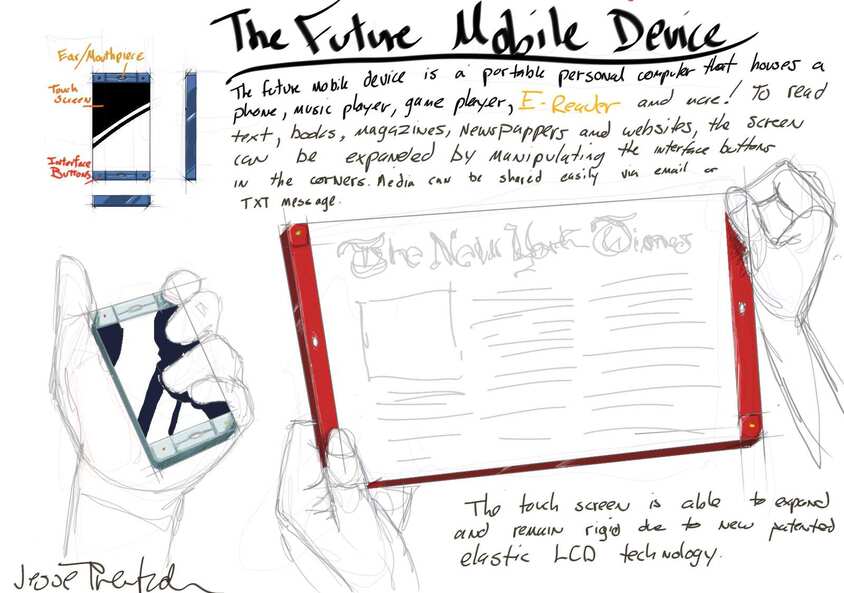 The Future Mobile Device
Ear/Mouthpiece
Touch
Screen
Interface
Buttons
The future mobile device is a portable personal computer that houses a
phone, music player, game player, E-Reader and more! To read
text, books, magazines, Newspappers and websites, the screen
can be expanded by manipulating the interface buttons
in the corners. Media can be shared easily via email or
TXT message.
The New York Times
The touch screen is able to expand
and remain rigid due to new patented
elastic LCD technology.
Jesse